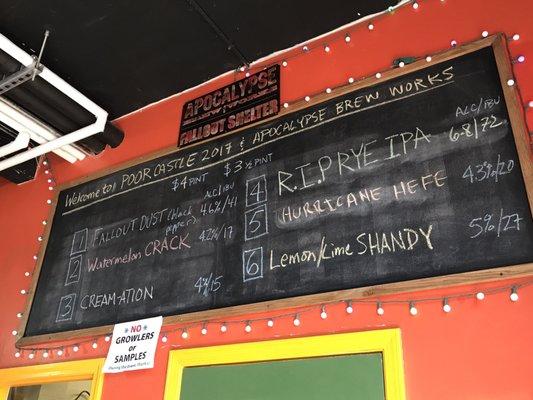 APOCALYPSE
FALLOUT SHELTER
Welcome to POOR CASTLE 2017 & APOCALYPSE BREW WORKS
$4 PINT $3 ½ PINT
ALC/IBU
1 FALLOUT DUST (black pepper) 4.6%/41
2 Watermelon CRACK 4.2%/17
3 CREAM-ATION 4%/15
ALC/IBU
4 R.I.P RYE IPA 6.8/72
5 HURRICANE HEFE 4.3%/20
6 Lemon/Lime SHANDY 5%/27
NO
GROWLERS or
SAMPLES